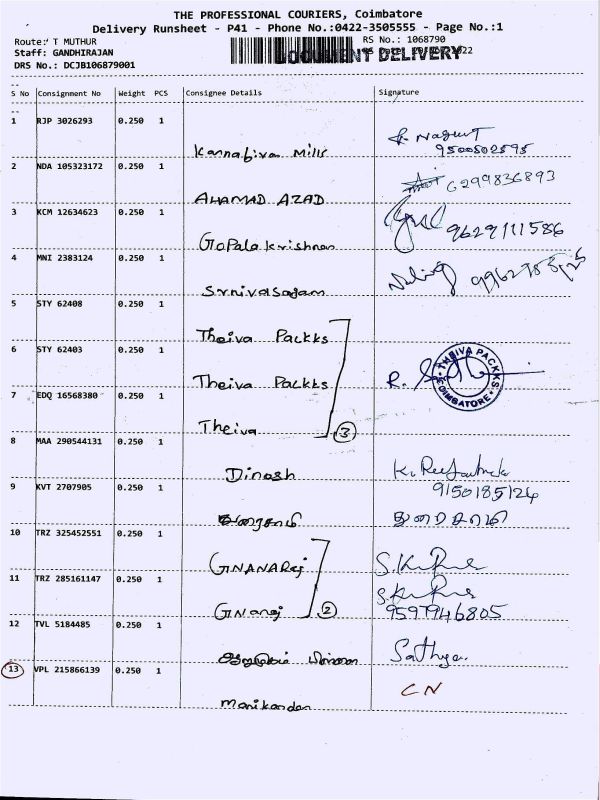 THE PROFESSIONAL COURIERS, Coimbatore
Delivery Runsheet - P41 - Phone No.:0422-3505555 - Page No.:1
Route: T MUTHUR
RS No.: 1068790
Staff: GANDHIRAJAN
DOCUMENT DELIVERY
DRS No.: DCJB106879001
S No Consignment No Weight PCS Consignee Details Signature
1 RJP 3026293 0.250 1
Kannabiran Mills 9500502595
2 NDA 105323172 0.250 1
AHAMAD AZAD 6299836893
3 KCM 12634623 0.250 1
Gopala krishnan 9629111586
4 MNI 2383124 0.250 1
Srnivasagam
5 STY 62408 0.250 1
Theiva Packks
6 STY 62403 0.250 1
Theiva Packks R.
THEIVA PACKKS COIMBATORE
7 EDQ 16568380 0.250 1
Theiva 3
8 MAA 290544131 0.250 1
Dinesh
9150185124
9 KVT 2707905 0.250 1
துரைசாமி துரைசாமி
10 TRZ 325452551 0.250 1
GNANARaj
11 TRZ 285161147 0.250 1
GNanaraj 2 9597946805
12 TVL 5184485 0.250 1
Sathya
13 VPL 215866139 0.250 1
CN
Manikandan